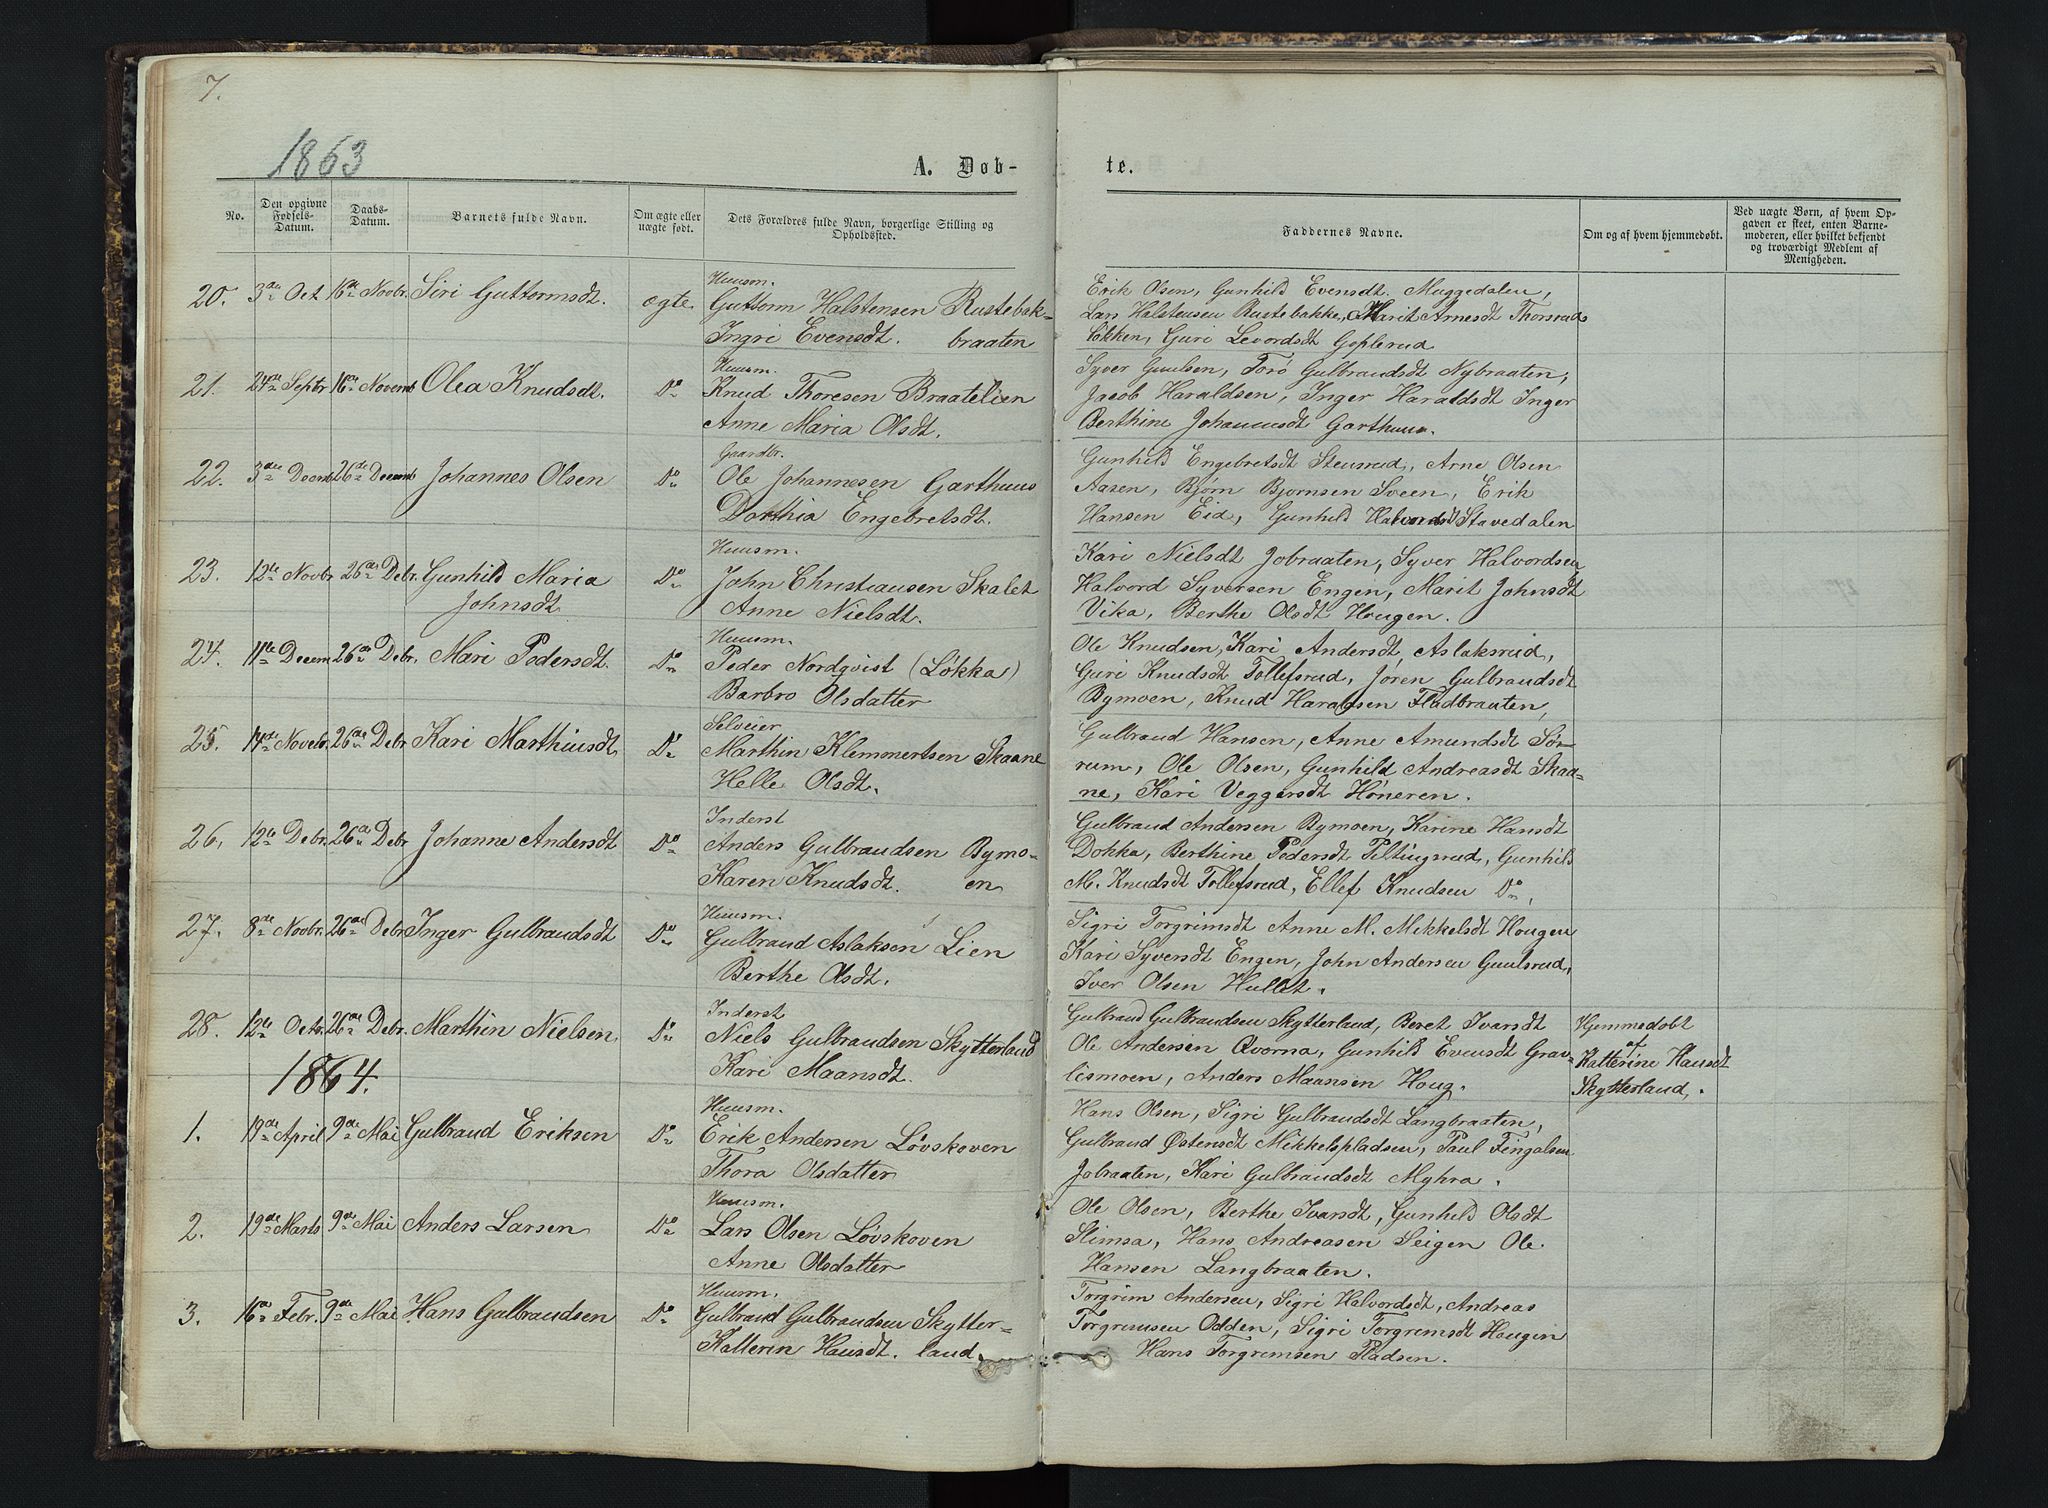 7.
1863
A. Døb-
te.
No.
Den opgivne Fødsels-Datum.
Daabs-Datum.
Barnets fulde Navn.
Om ægte eller uægte født.
Dets Forældres fulde Navn, borgerlige Stilling og Opholdssted.
Faddernes Navne.
Om og af hvem hjemmedøbt.
Ved uægte Børn, af hvem Op-
gaven er skeet, enten Barne-
moderen, eller hvilket bekjendt
og troværdigt Medlem af
Menigheden.
Huusm.
20. 3die Oct 16de Novbr. Siri Guttormsdt. ægte. Guttorm Halstensen Rustebak-
Ingri Evensdt. braaten
Erik Olsen, Gunhild Evensdt. Muggedalen,
Lars Halstensen Rustebakke, Marit Arnesdt Thorsrud
Løkken, Guri Levordsdt Goplerud
Huusm.
21. 24de Septbr 16de Novemb Olea Knudsdt. Do Knud Thoresen Braatelien
Anne Maria Olsdt.
Syver Guulsen, Torø Gulbrandsdt Nybraaten,
Jacob Haraldsen, Inger Haraldsdt Inger
Berthine Johannesdt Garthuus.
Gaardbr.
22. 3die Decemb 26de Decemb Johannes Olsen Do Ole Johannesen Garthuus
Dorthia Engebretsdt.
Gunhild Engebretsdt Stensrud, Arne Olsen
Aasen, Bjørn Bjørnsen Sveen, Erik
Hansen Eid, Gunhild Halvordsdt Stavedalen
Huusm.
23. 12te Novbr 26de Debr. Gunhild Maria
Johnsdt
Do John Christiansen Skalet
Anne Nielsdt.
Kari Nielsdt Jobraaten, Syver Halvordsen,
Halvord Syversen Engen, Marit Johnsdt
Vika, Berthe Olsdt Hougen.
Huusm.
24. 11te Decem 26de Debr. Mari Pedersdt. Do Peder Nordqvist (Løkka)
Barbro Olsdatter
Ole Knudsen, Kari Andersdt Aslaksrud,
Guri Knudsdt Tollefsrud, Jøren Gulbrandsdt
Bymoen, Knud Haraldsen Fladbraaten,
Selveier
25. 14de Novebr. 26de Debr Kari Marthinsdt Do Marthin Klemmertsen Skaane
Helle Olsdt.
Gulbrand Hansen, Anne Amundsdt Sør-
rum, Ole Olsen, Gunhild Andreasdt Skaa-
ne, Kari Veggersdt Høneren.
Inderst
26. 12te Debr. 26de Debr Johanne Andersdt Do Anders Gulbrandsen Bymo-
Karen Knudsdt. en
Gulbrand Andersen Bymoen, Karine Hansdt
Dokka, Berthine Pedersdt Piltingsrud, Gunhild
M. Knudsdt Tollefsrud, Ellef Knudsen Do,
Huusm.
27. 8de Novbr. 26de Debr Inger Gulbrandsdt Do Gulbrand Aslaksen Lien
Berthe Olsdt.
Sigri Torgrimsdt Anne M. Mikkelsdt Hougen
Kari Syversdt Engen, John Andersen Guulsrud,
Iver Olsen Hullet.
Inderst
28. 12te Octbr. 26de Debr. Marthin Nielsen Do Niels Gulbrandsen Skytterland
Kari Maansdt.
Gulbrand Gulbrandsen Skytterland, Beret Ivarsdt
Ole Andersen Qvorna, Gunhild Evensdt Grav-
lismoen, Anders Maansen Houg.
Hjemmedøbt
af
Katterine Hansdt
Skytterland.
1864.
Huusm.
1. 19de April 9de Mai Gulbrand Eriksen Do Erik Andersen Løvskoven
Thora Olsdatter
Hans Olsen, Sigri Gulbrandsdt Langbraaten,
Gulbrand Østensdt Mikkelspladsen, Paul Fingalsen
Jobraaten, Kari Gulbrandsdt Myhra.
Huusm.
2. 19de Marts 9de Mai Anders Larsen Do Lars Olsen Løvskoven
Anne Olsdatter
Ole Olsen, Berthe Ivarsdt, Gunhild Olsdt
Slimsa, Hans Andreasen Seigen Ole
Hansen Langbraaten.
Huusm.
3. 16de Febr. 9de Mai Hans Gulbrandsen Do Gulbrand Gulbrandsen Skytter-
Katterin Hansdt. land
Torgrim Andersen, Sigri Halvordsdt, Andreas
Torgrimsen Odden, Sigri Torgrimsdt Hougen
Hans Torgrimsen Pladsen.